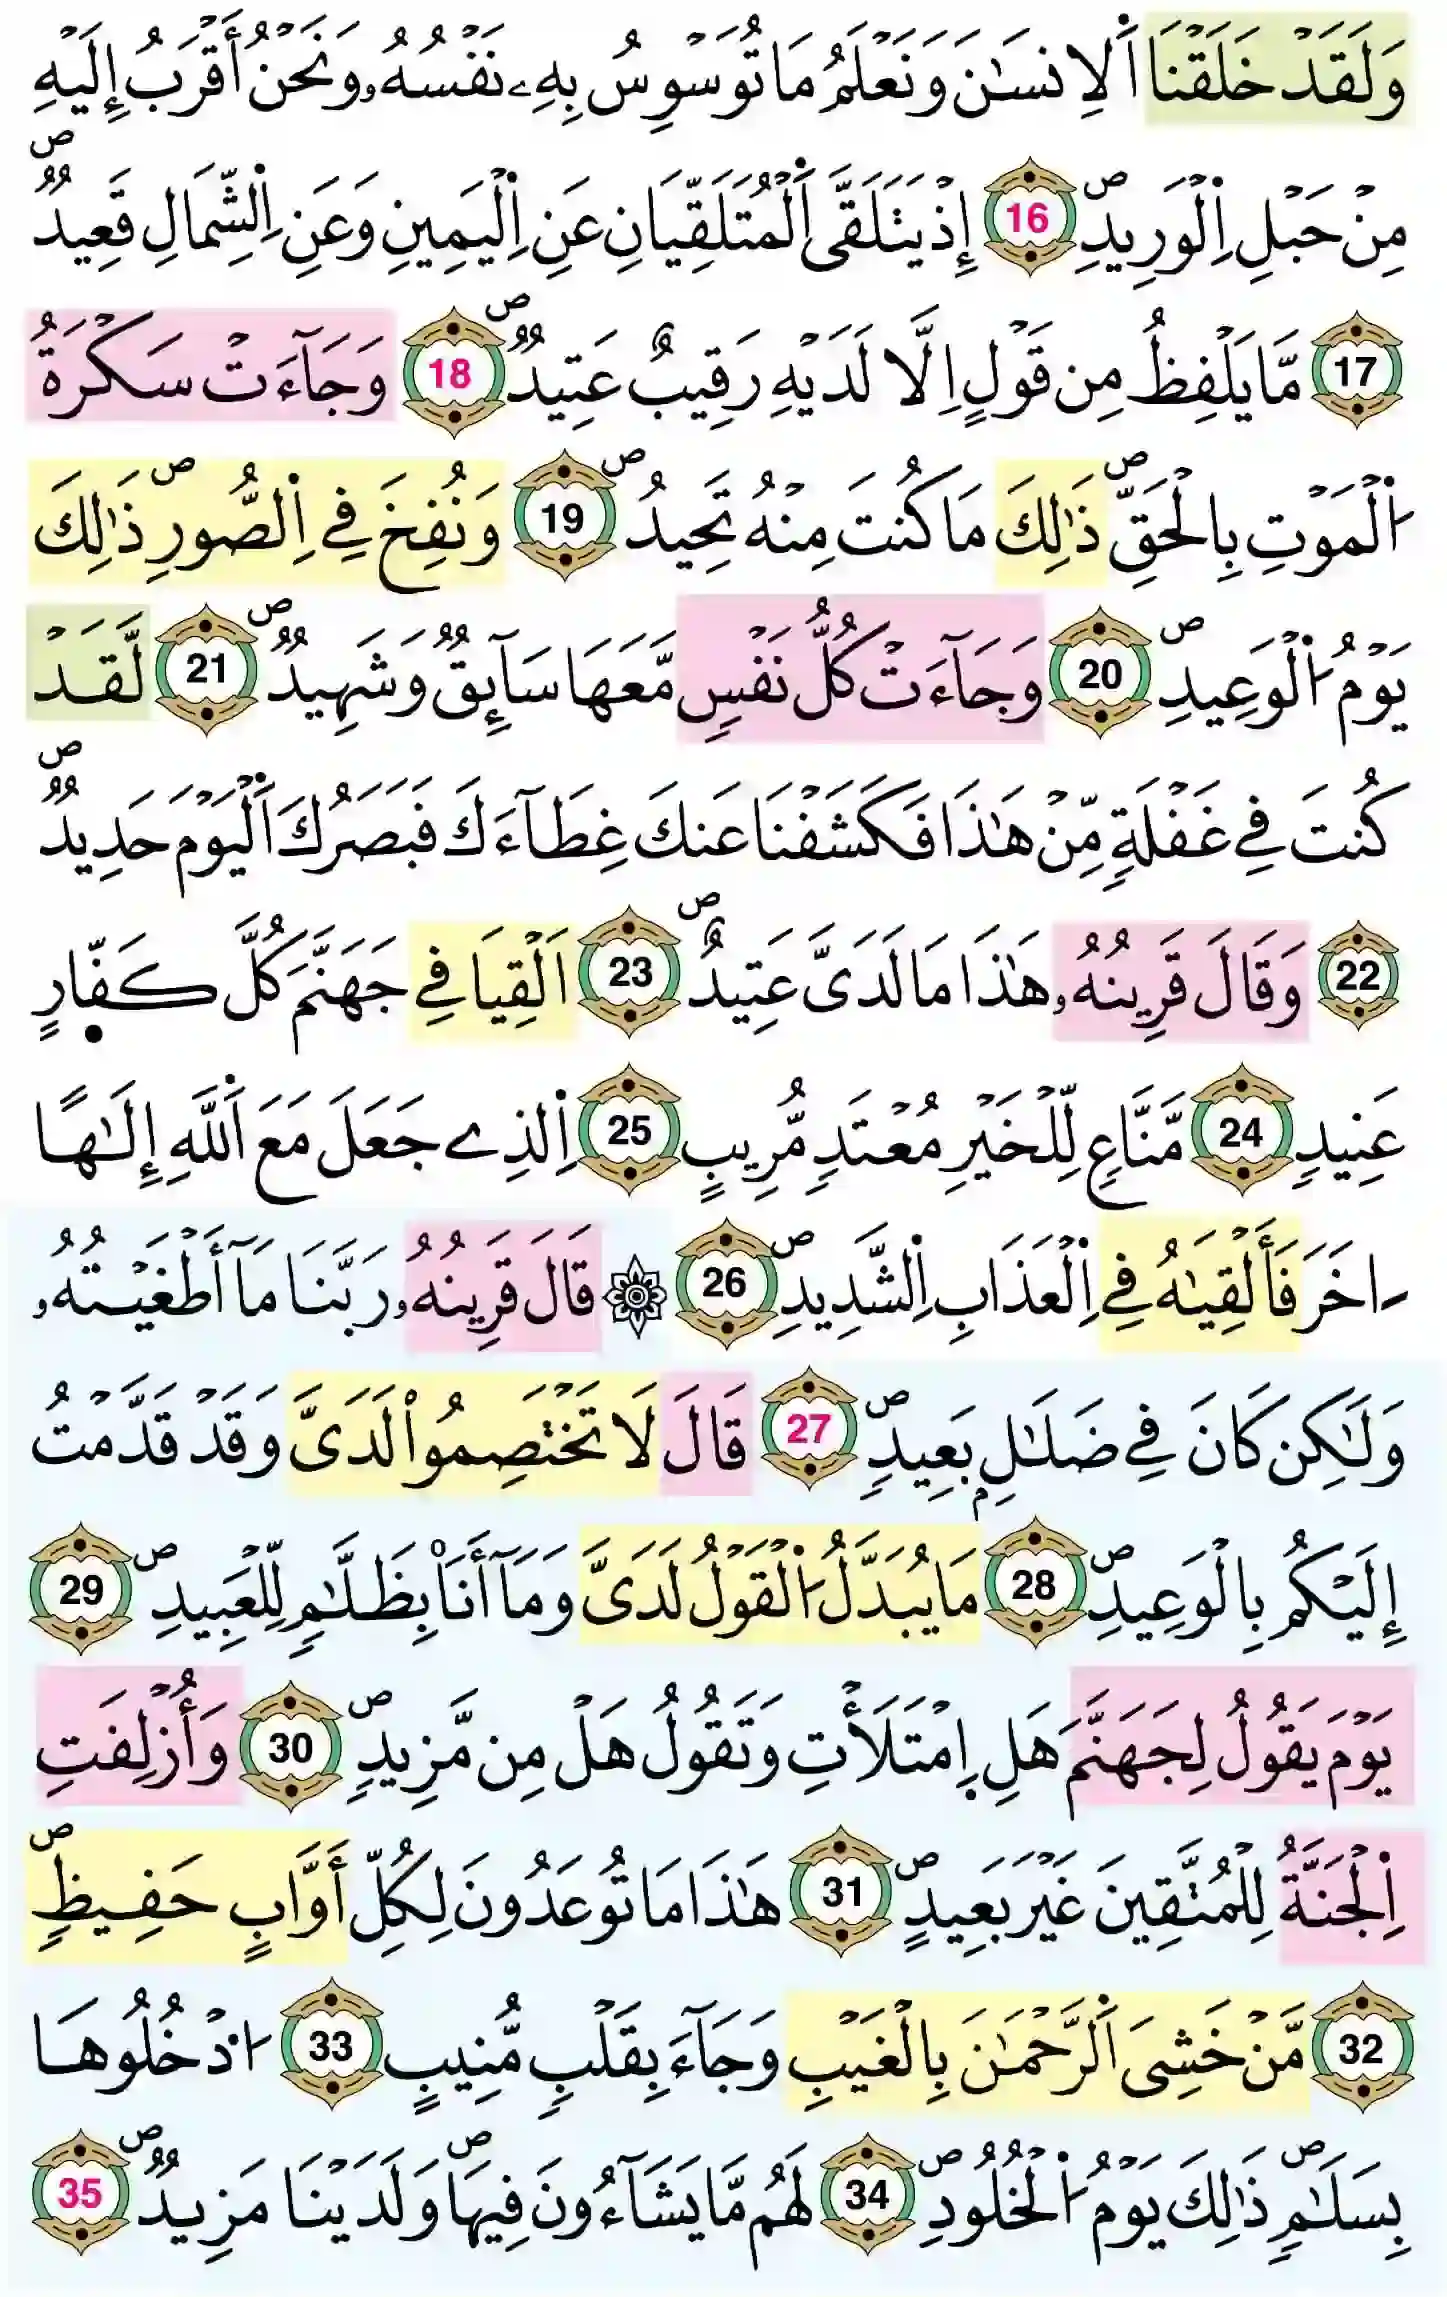 وَلَقَدْ خَلَقْنَا اَ۬لِانسَٰنَ وَنَعْلَمُ مَا تُوَسْوِسُ بِهِۦ نَفْسُهُۥ وَنَحْنُ أَقْرَبُ إِلَيْهِ
مِنْ حَبْلِ اِ۬لْوَرِيدِۖ 16 إِذْ يَتَلَقَّى اَ۬لْمُتَلَقِّيَانِ عَنِ اِ۬لْيَمِينِ وَعَنِ اِ۬لشِّمَالِ قَعِيدٞۖ
17 مَّا يَلْفِظُ مِن قَوْلٍ اِلَّا لَدَيْهِ رَقِيبٌ عَتِيدٞۖ 18 وَجَآءَتْ سَكْرَةُ
اُ۬لْمَوْتِ بِالْحَقِّۖ ذَٰلِكَ مَا كُنتَ مِنْهُ تَحِيدُۖ 19 وَنُفِخَ فِے اِ۬لصُّورِۖ ذَٰلِكَ
يَوْمُ اُ۬لْوَعِيدِۖ 20 وَجَآءَتْ كُلُّ نَفْسٖ مَّعَهَا سَآئِقٞ وَشَهِيدٞۖ 21 لَّقَدْ
كُنتَ فِے غَفْلَةٖ مِّنْ هَٰذَا فَكَشَفْنَا عَنكَ غِطَآءَكَ فَبَصَرُكَ اَ۬لْيَوْمَ حَدِيدٞۖ
22 وَقَالَ قَرِينُهُۥ هَٰذَا مَا لَدَيَّ عَتِيدٌۖ 23 اَلْقِيَا فِے جَهَنَّمَ كُلَّ كَفّ۪ارٍ
عَنِيدٖ 24 مَّنَّاعٖ لِّلْخَيْرِ مُعْتَدٖ مُّرِيبٍ 25 اِ۬لذِے جَعَلَ مَعَ اَ۬للَّهِ إِلَٰهاً
اخَرَ فَأَلْقِيَٰهُ فِے اِ۬لْعَذَابِ اِ۬لشَّدِيدِۖ 26 ۞ قَالَ قَرِينُهُۥ رَبَّنَا مَآ أَطْغَيْتُهُۥ
وَلَٰكِن كَانَ فِے ضَلَٰلِۢ بَعِيدٖۖ 27 قَالَ لَا تَخْتَصِمُواْ لَدَيَّ وَقَدْ قَدَّمْتُ
إِلَيْكُم بِالْوَعِيدِۖ 28 مَا يُبَدَّلُ اُ۬لْقَوْلُ لَدَيَّ وَمَآ أَنَا۠ بِظَلَّٰمٖ لِّلْعَبِيدِۖ 29
يَوْمَ يَقُولُ لِجَهَنَّمَ هَلِ اِ۪مْتَلَأْتِ وَتَقُولُ هَلْ مِن مَّزِيدٖۖ 30 وَأُزْلِفَتِ
اِ۬لْجَنَّةُ لِلْمُتَّقِينَ غَيْرَ بَعِيدٍۖ 31 هَٰذَا مَا تُوعَدُونَ لِكُلِّ أَوَّابٍ حَفِيظٖۖ
32 مَّنْ خَشِيَ اَ۬لرَّحْمَٰنَ بِالْغَيْبِ وَجَآءَ بِقَلْبٖ مُّنِيبٍ 33 اُ۟دْخُلُوهَا
بِسَلَٰمٖۖ ذَٰلِكَ يَوْمُ اُ۬لْخُلُودِۖ 34 لَهُم مَّا يَشَآءُونَ فِيهَاۖ وَلَدَيْنَا مَزِيدٞۖ 35